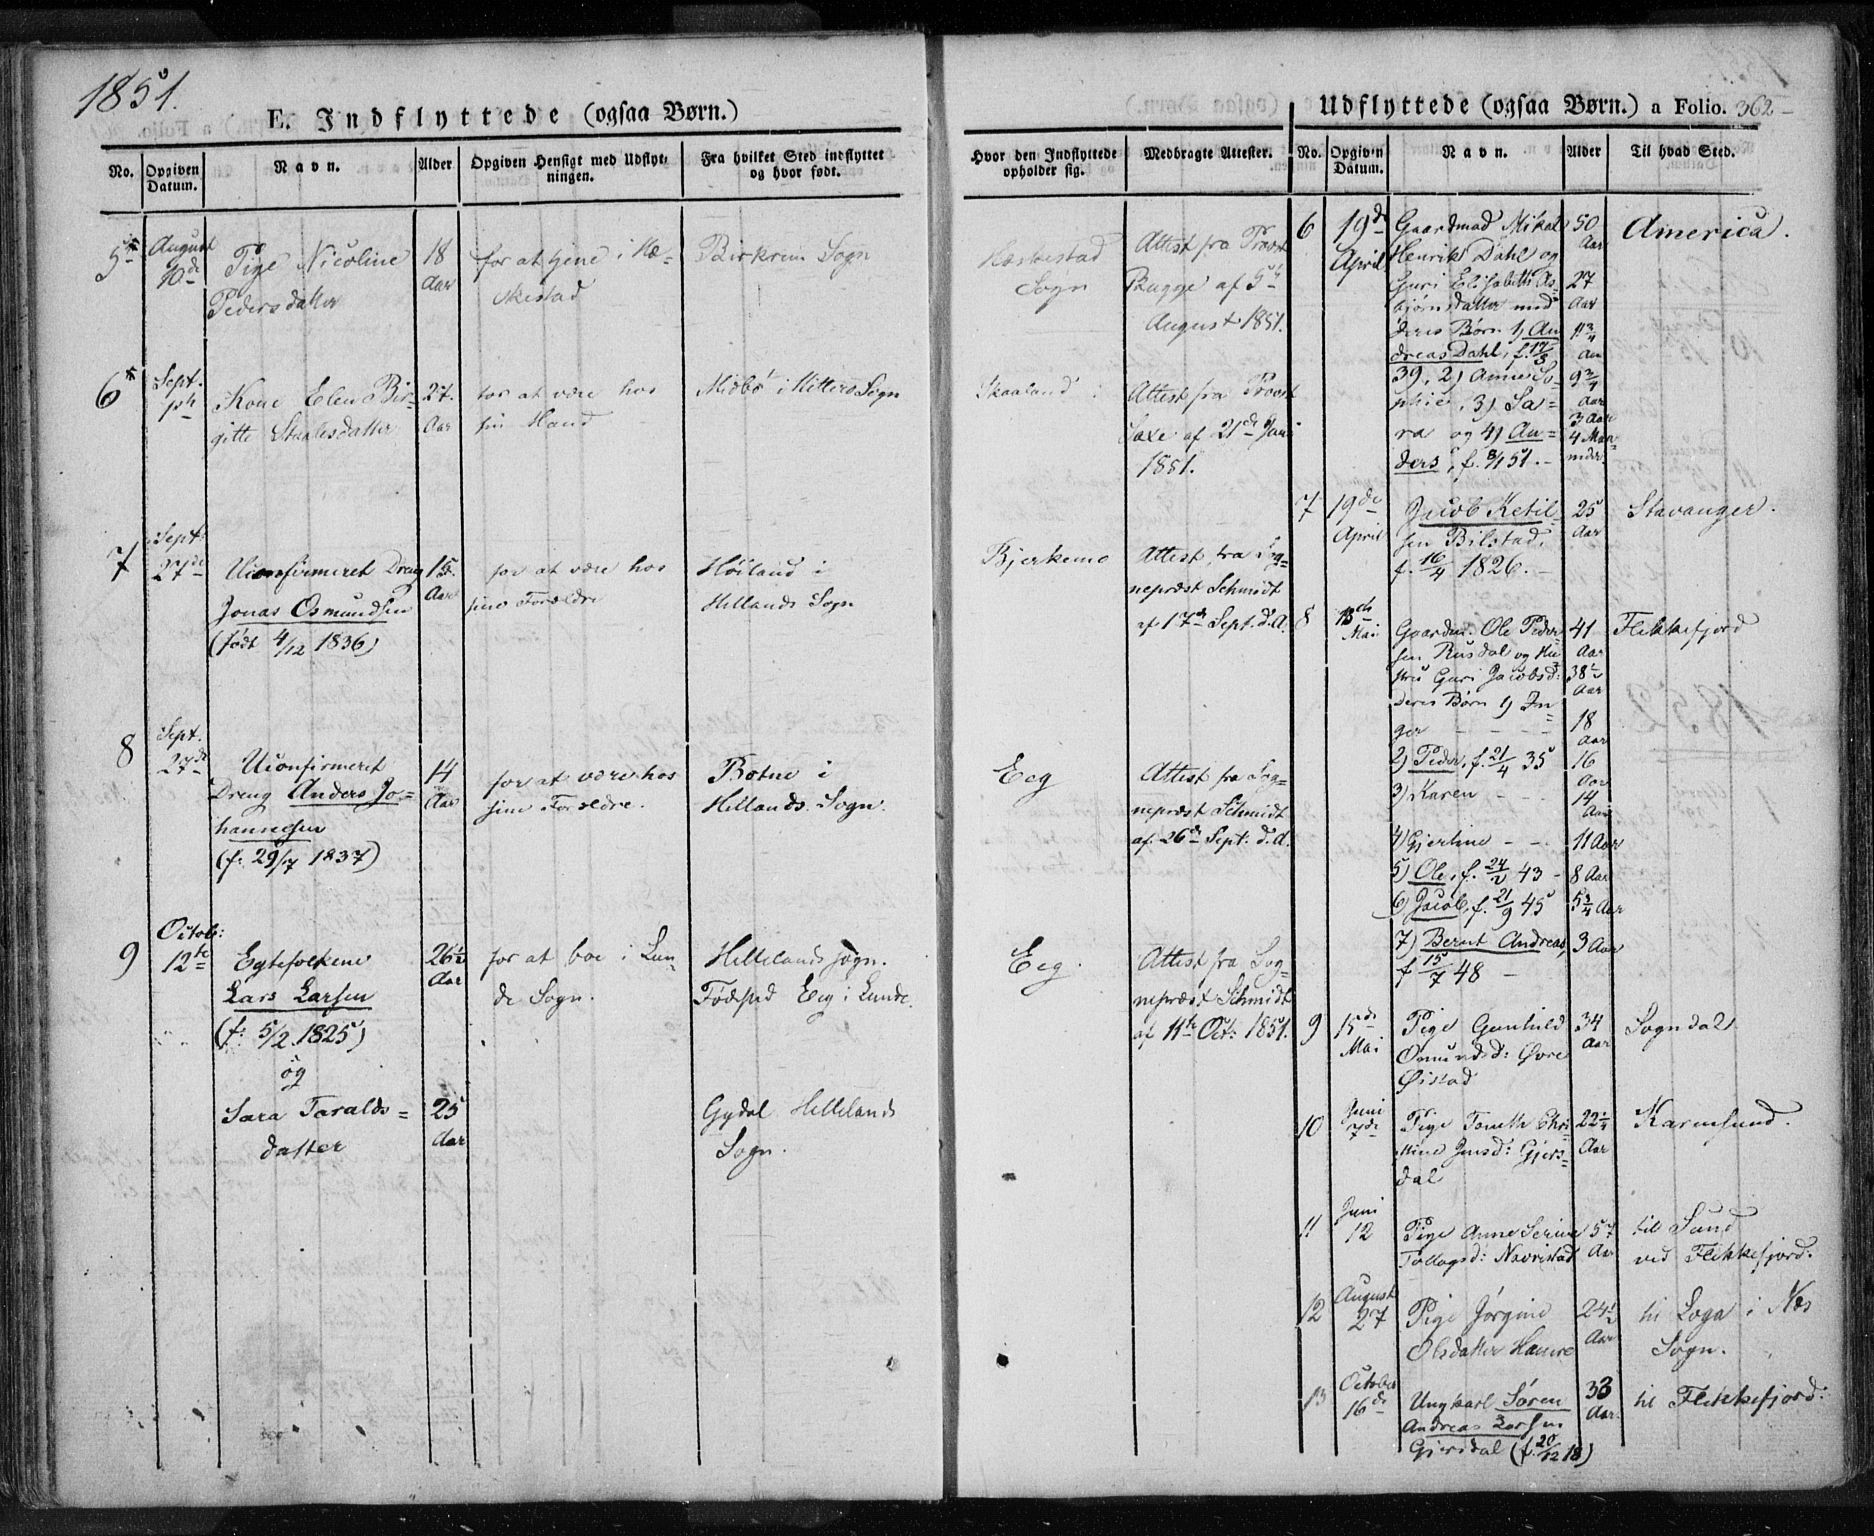 1851.
E. Indflyttede (ogsaa Børn.)
No.
Opgiven Datum.
Navn.
Alder
Opgiven Hensigt med Udflyt-
ningen.
Fra hvilket Sted indflyttet
og hvor født.
Hvor den Indflyttede
opholder sig.
Medbragte Attester.
5
August
10de
Tige Nicoline
Pedersdatter
18
Aar
for at tjene i Hæ-
skestad
Birkrem Sogn
Hæskestad
Sogn
Attest fra Provst
Bugge af 5te
August 1851.
6
Sept.
Kone Elen Bir-
gitte Staalesdatter
27.
Aar
for at være hos
sin Mand
Midbø i Hitterø Sogn
Skaaland
Attest fra Provst
Saxe af 21de Jan
1851.
7
Sept.
27de
Uconfirmeret Dreng
Jonas Osmundsen
(født 4/12 1836)
15
Aar
for at være hos
sine Forældre
Høiland i
Hellands Sogn
Bjerkemo
Attest fra Sog-
nepræst Schmidt
af 17de Sept. d.A.
8
Sept.
27de
Uconfirmeret
Dreng Anders Jo-
hannesen
(f. 29/7 1837)
14
Aar
for at være hos
sine Forældre.
Botne i
Hellands Sogn.
Eeg
Attest fra Sog-
nepræst Schmidt
af 26de Sept. d.A.
9
Octob:
12te
Egtefolkene
Lars Larsen
(f: 5/2 1825)
og
Sara Taralds-
datter
26½
Aar
25
Aar
for at boe i Lun-
de Sogn.
Hellelands sogn.
Fødsted Eeg i Lunde.
Gydal Hellelands
Sogn.
Eeg.
Attest fra Sog-
nepræst Schmidt
af 11te Oct: 1851.
Udflyttede (ogsaa Børn.) a Folio. 362
No.
Opgiven Datum.
Navn.
Alder
Til hvad Sted.
6
19de
April
Gaardmad Mikal
Henriks Dahl og
Guri Elisabeth As-
bjørnsdatter med
deres Børn 1) An
dreas Dahl, f. 17/3
39, 2) Anne So-
phie, 3) Sa-
ra og 4) An-
ders, f. 8/1 51.
50
Aar
27
Aar
11¾
Aar
9¾
Aar
3 Aar
4 Maa-
neder.
America.
7
19de
April
Jacob Ketil-
sen Bilstad,
f. 16/4 1826.
25
Aar
Stavanger.
8
13de
Mai
Gaardm. Ole Peder-
sen Rusdal og Hu-
stru Guri Jacobsd:
deres Børn 1) In-
ger
2) Peder, f. 21/4 35
3) Karen
4) Gjertine
5) Ole, f. 24/2 43
6) Jacob, f. 21/9 45
7) Bernt Andreas,
f 15/7 48
41
Aar
38½
Aar
18
Aar
16
Aar
14
Aar
11 Aar
8 Aar
5¾ Aar
3 Aar
Flekkefjord
9
15de
Mai
Pige Gunhild
Omundsd: Øvre
Øistad
34
Aar
Sogndal
10
Juni
7de
Pige Tomth Chri-
stine Jensd: Gjers-
dal
22¼
Aar
Karmsund.
11
Juni
12
Pige Anne Serine
Tollagsd: Navrestad
Aar
til Sund
ved Flekkefjord:
12
August
27
Pige Jørgine
Olsdatter Hamre
24½
Aar
til Loga i Nes
Sogn.
13
October
16de
Ungkarl Søren
Andreas Larsen
Gjersdal (f. 20/12 18)
33
Aar.
til Flekkefjord: